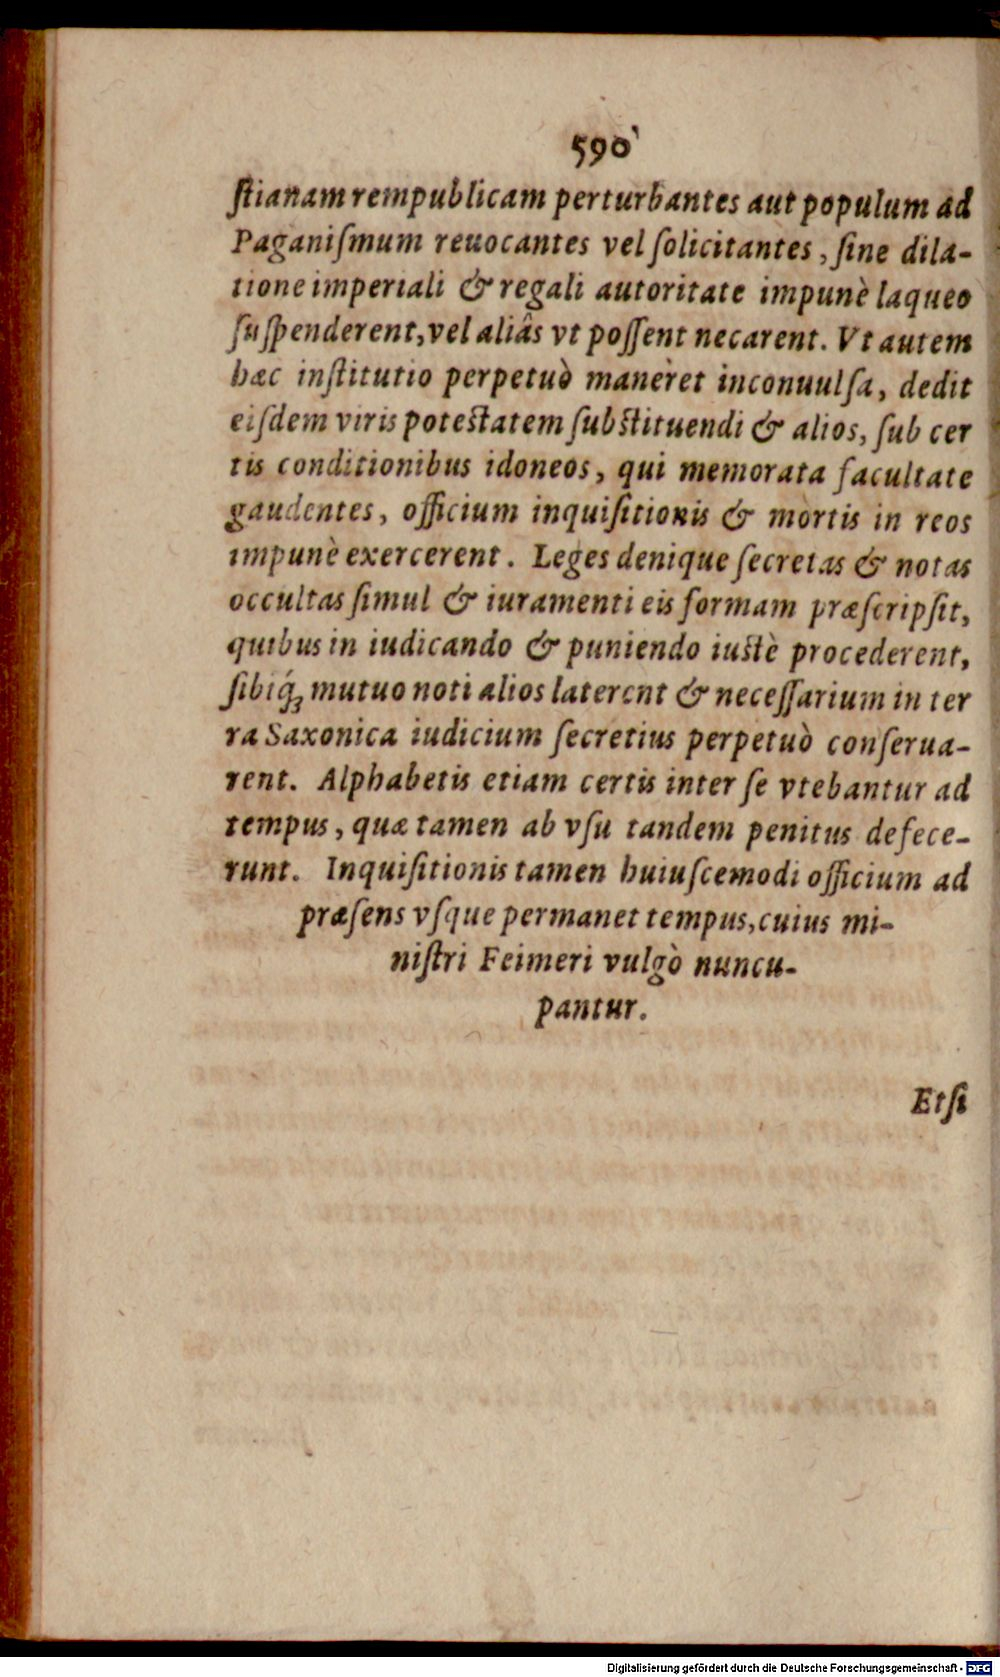 590
ſtianam rempublicam perturbantes aut populum ad
Paganiſmum reuocantes vel ſolicitantes, ſine dila-
tione imperiali & regali autoritate impunè laqueo
ſuſpenderent, vel aliâs vt poſſent necarent. Vt autem
hæc inſtitutio perpetuò manèret inconuulſa, dedit
eiſdem viris poteſtatem ſubſtituendi & alios, ſub cer
tis conditionibus idoneos, qui memorata facultate
gaudentes, officium inquiſitionis & mortis in reos
impunè exercerent. Leges denique ſecretas & notas
occultas ſimul & iuramenti eis formam præſcripſit,
quibus in iudicando & puniendo iuſtè procederent,
ſibiq́ꝫ mutuo noti alios laterent & neceſſarium in ter
ra Saxonica iudicium ſecretius perpetuò conſerua-
rent. Alphabetis etiam certis inter ſe vtebantur ad
tempus, quæ tamen ab vſu tandem penitus defece-
runt. Inquiſitionis tamen huiuſcemodi officium ad
præſens vſque permanet tempus, cuius mi-
niſtri Feimeri vulgò nuncu-
pantur.
Etſi
Digitalisierung gefördert durch die Deutsche Forschungsgemeinschaft - DFG